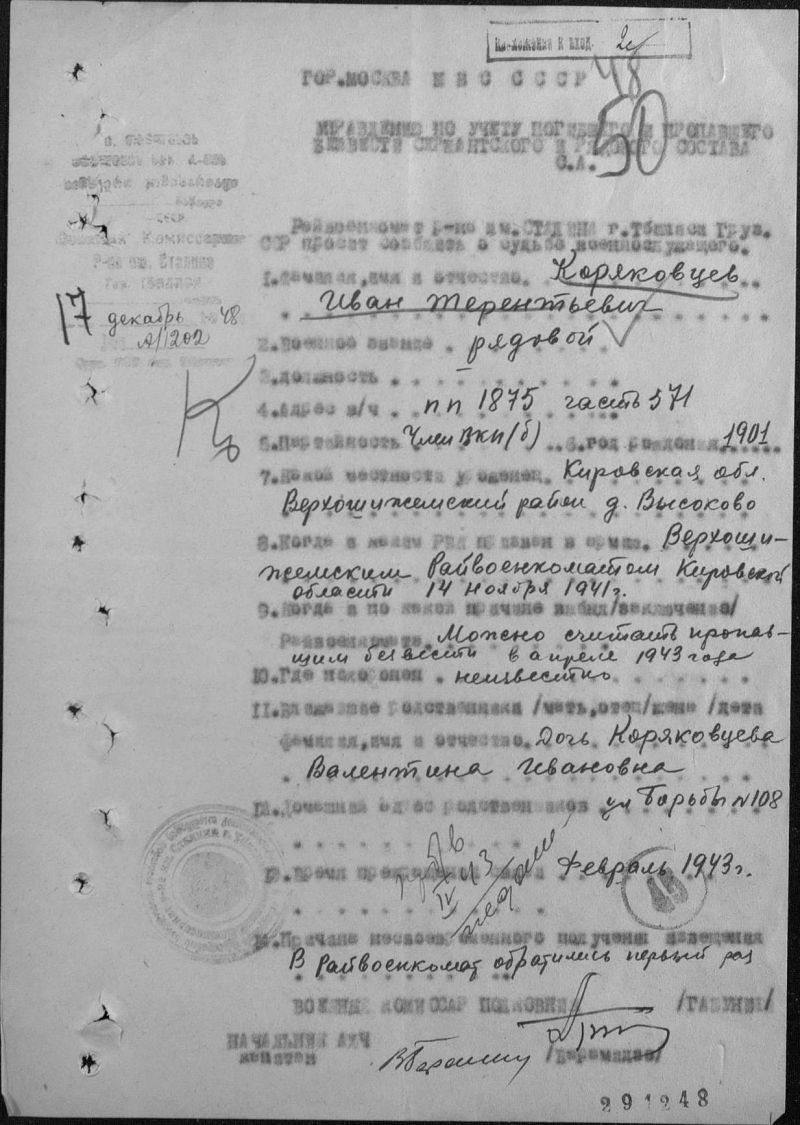 2
ГОР.МОСКВА М В С С С С Р
48
50
УПРАВЛЕНИЕ ПО УЧЕТУ ПОГИБШЕГО И ПРОПАВШЕГО
БЕЗВЕСТИ СЕРЖАНТСКОГО И РЯДОВОГО СОСТАВА
С.А.
Райвоенкомат р-на им.СТАЛИНА г.Тбилиси Груз.
ССР просит сообщить о судьбе военнослужащего.
1.Фамилия,имя и отчество. Коряковцев
Иван Терентьевич
17 декабрь 48
1202
2.Военное звание . рядовой
3.должность
4.Адрес в/ч . . пп 1875 часть 571
5.Партийность Член ВКП(б) 6.год рождения 1901
7.Какой местности уроженец. Кировская обл.
Верхошижемский район д. Высоково
8.Когда и каким РВК призван в армию. Верхоши-
жемским Райвоенкоматом Кировской
области 14 ноября 1941 г.
9.Когда и по какой причине выбыл/заключение/
Райвоенкомата. Можно считать пропав-
щим безвести в апреле 1943 года
10.Где похоронен . неизвестно
11.Ближайшие родственники /мать,отец/жена /дети
фамилия,имя и отчество. Дочь Коряковцева
Валентина Ивановна
12.Домашний адрес родственников ул Борьбы N 108
13.Время прекращения Февраль 1943 г.
IV 43
49
14.Причина несвоевременного получения извещения
В Райвоенкомат обратились первый раз
ВОЕННЫЙ КОМИССАР ПОЛКОВНИК
НАЧАЛЬНИК АХЧ
капитан
291248